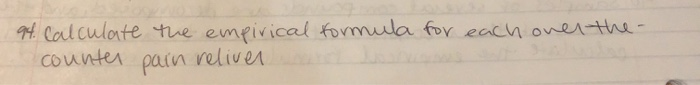 94. Calculate the empirical formula for each over-the-
counter pain reliver